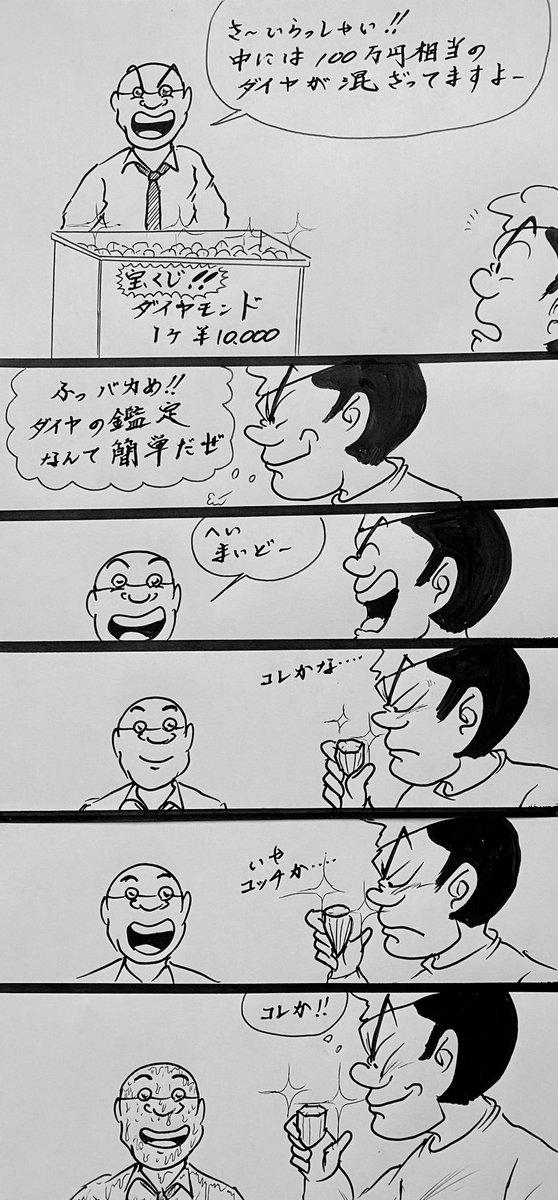 さ〜いらっしゃい!!
中には100万円相当の
ダイヤが混ざってますよー
宝くじ!!
ダイヤモンド
1ケ ¥10.000
ふっバカめ!!
ダイヤの鑑定
なんて簡単だぜ
へい
まいどー
コレかな....
いや
コッチか....
コレか!!